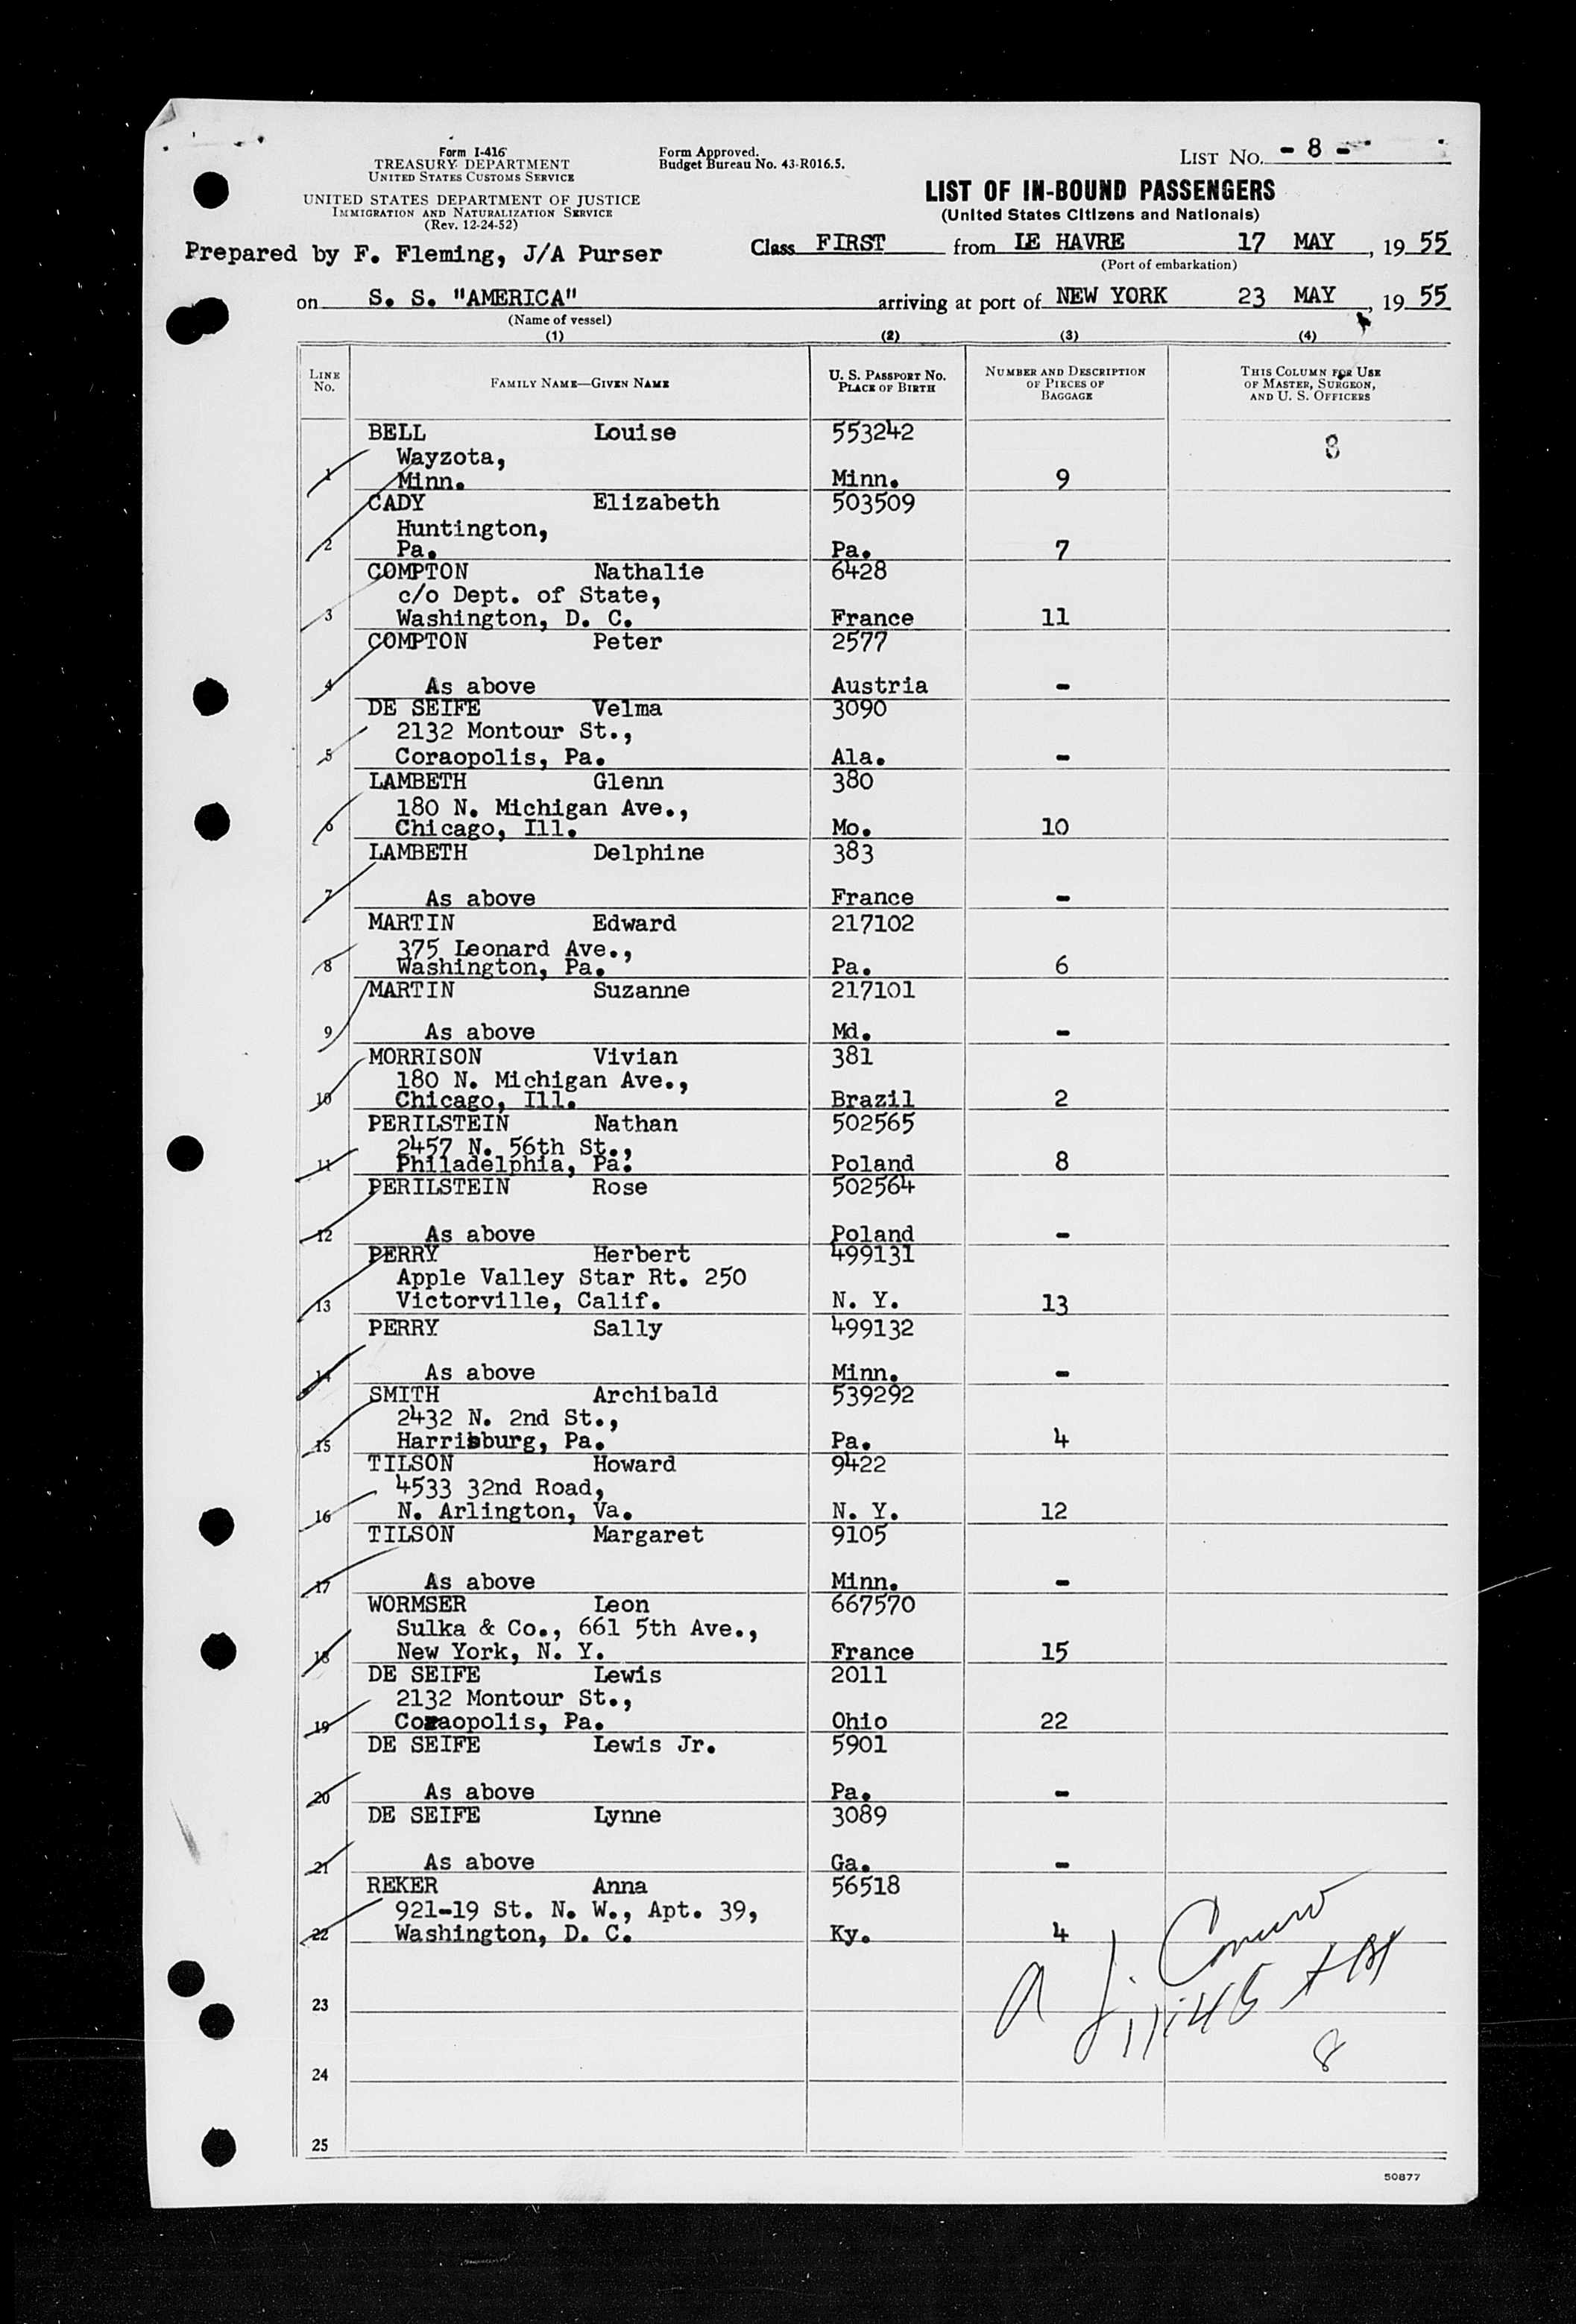 Form I-416
TREASURY DEPARTMENT
UNITED STATES CUSTOMS SERVICE
UNITED STATES DEPARTMENT OF JUSTICE
IMMIGRATION AND NATURALIZATION SERVICE
(Rev. 12-24-52)
Form Approved.
Budget Bureau No. 43-R016.5.
LIST NO. - 8 -
LIST OF IN-BOUND PASSENGERS
(United States Citizens and Nationals)
Prepared by F. Fleming, J/A Purser
Class FIRST from LE HAVRE 17 MAY, 19 55
(Port of embarkation)
on S. S. "AMERICA" arriving at port of NEW YORK 23 MAY, 19 55
(Name of vessel)
(1) (2) (3) (4)
LINE NO. FAMILY NAME—GIVEN NAME U. S. PASSPORT NO. PLACE OF BIRTH NUMBER AND DESCRIPTION OF PIECES OF BAGGAGE THIS COLUMN FOR USE OF MASTER, SURGEON, AND U. S. OFFICERS
BELL Louise 553242 8
Wayzota,
1 Minn. Minn. 9
CADY Elizabeth 503509
Huntington,
2 Pa. Pa. 7
COMPTON Nathalie 6428
c/o Dept. of State,
3 Washington, D. C. France 11
COMPTON Peter 2577
4 As above Austria -
DE SEIFE Velma 3090
2132 Montour St.,
5 Coraopolis, Pa. Ala. -
LAMBETH Glenn 380
180 N. Michigan Ave.,
6 Chicago, Ill. Mo. 10
LAMBETH Delphine 383
7 As above France -
MARTIN Edward 217102
375 Leonard Ave.,
8 Washington, Pa. Pa. 6
MARTIN Suzanne 217101
9 As above Md. -
MORRISON Vivian 381
180 N. Michigan Ave.,
10 Chicago, Ill. Brazil 2
PERILSTEIN Nathan 502565
2457 N. 56th St.,
11 Philadelphia, Pa. Poland 8
PERILSTEIN Rose 502564
12 As above Poland -
PERRY Herbert 499131
Apple Valley Star Rt. 250
13 Victorville, Calif. N. Y. 13
PERRY Sally 499132
14 As above Minn. -
SMITH Archibald 539292
2432 N. 2nd St.,
15 Harrisburg, Pa. Pa. 4
TILSON Howard 9422
4533 32nd Road,
16 N. Arlington, Va. N. Y. 12
TILSON Margaret 9105
17 As above Minn. -
WORMSER Leon 667570
Sulka & Co., 661 5th Ave.,
18 New York, N. Y. France 15
DE SEIFE Lewis 2011
2132 Montour St.,
19 Coraopolis, Pa. Ohio 22
DE SEIFE Lewis Jr. 5901
20 As above Pa. -
DE SEIFE Lynne 3089
21 As above Ga. -
REKER Anna 56518
921-19 St. N. W., Apt. 39,
22 Washington, D. C. Ky. 4
23
11:45
24
8
25
50877